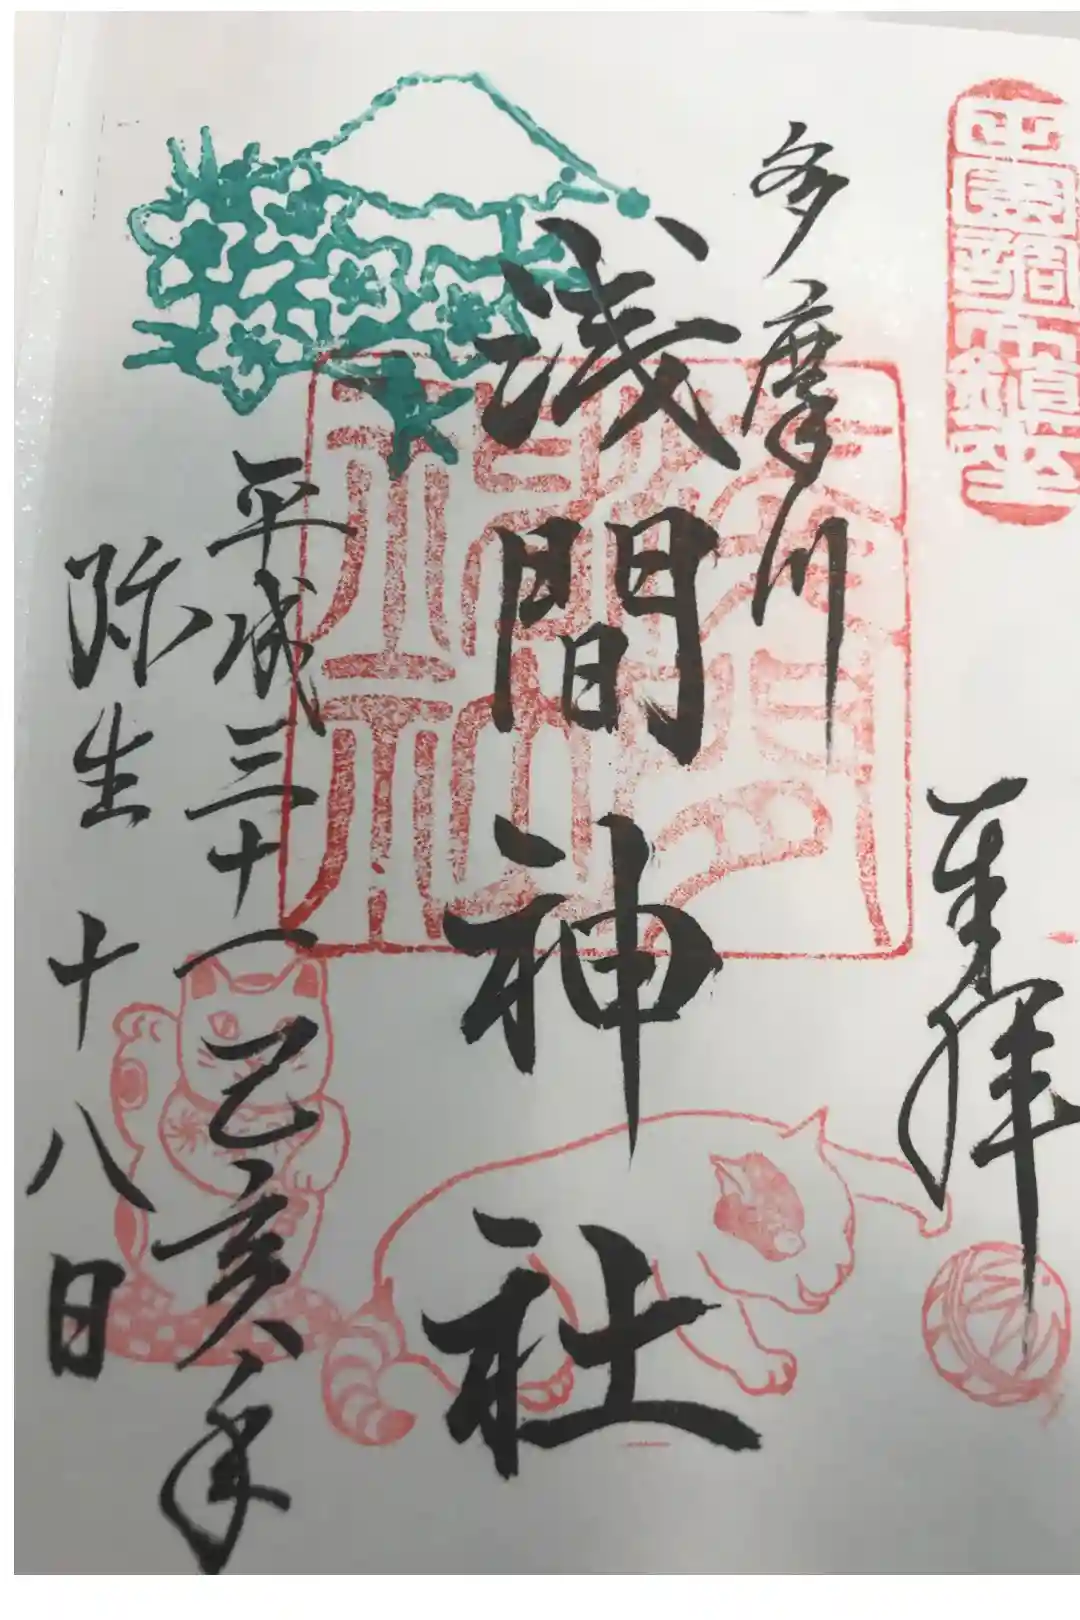 奉拝
多摩川
浅間神社
平成三十一己亥年
弥生 十八日